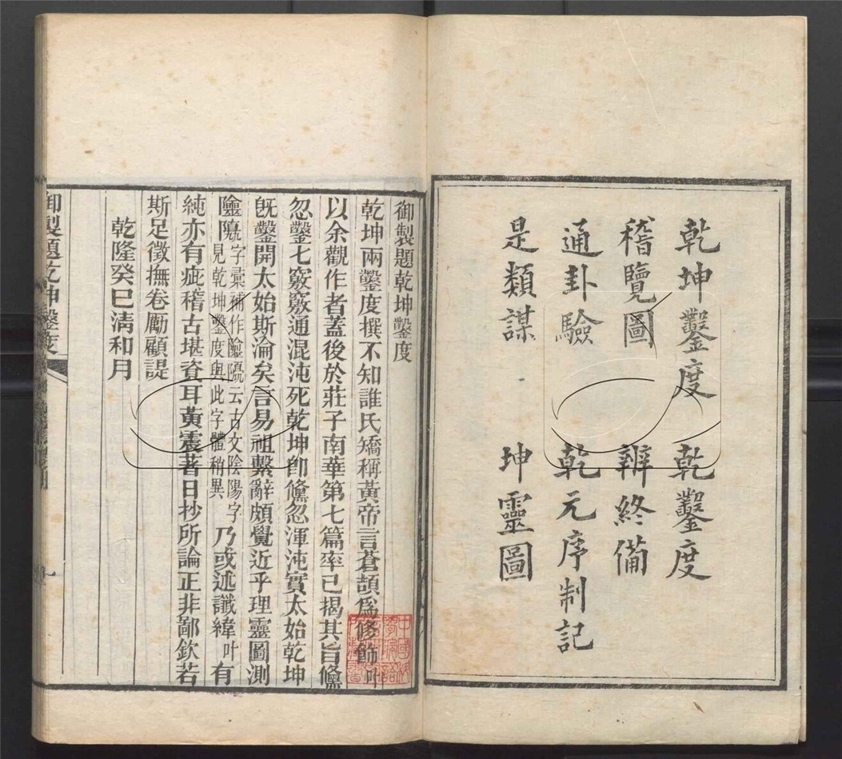 乾坤鑿度　乾鑿度
稽覽圖　辨終備
通卦驗　乾元序制記
是類謀　坤靈圖
御製題乾坤鑿度
乾坤兩鑿度撰不知誰氏矯稱黃帝言蒼頡爲修飾叶
以余觀作者蓋後於莊子南華第七篇率已揭其旨儵
忽鑿七竅竅通混沌死乾坤卽儵忽渾沌實太始乾坤
旣鑿開太始斯淪矣言易祖繫辭頗覺近乎理靈圖測
字彙補作云古文陰陽字
見乾坤鑿度與此字體稍異
乃或述讖緯叶有
純亦有疵稽古堪資耳黃震著日抄所論正非鄙欽若
斯足徵撫卷勵顧諟
乾隆癸巳清和月
御製題乾坤鑿度